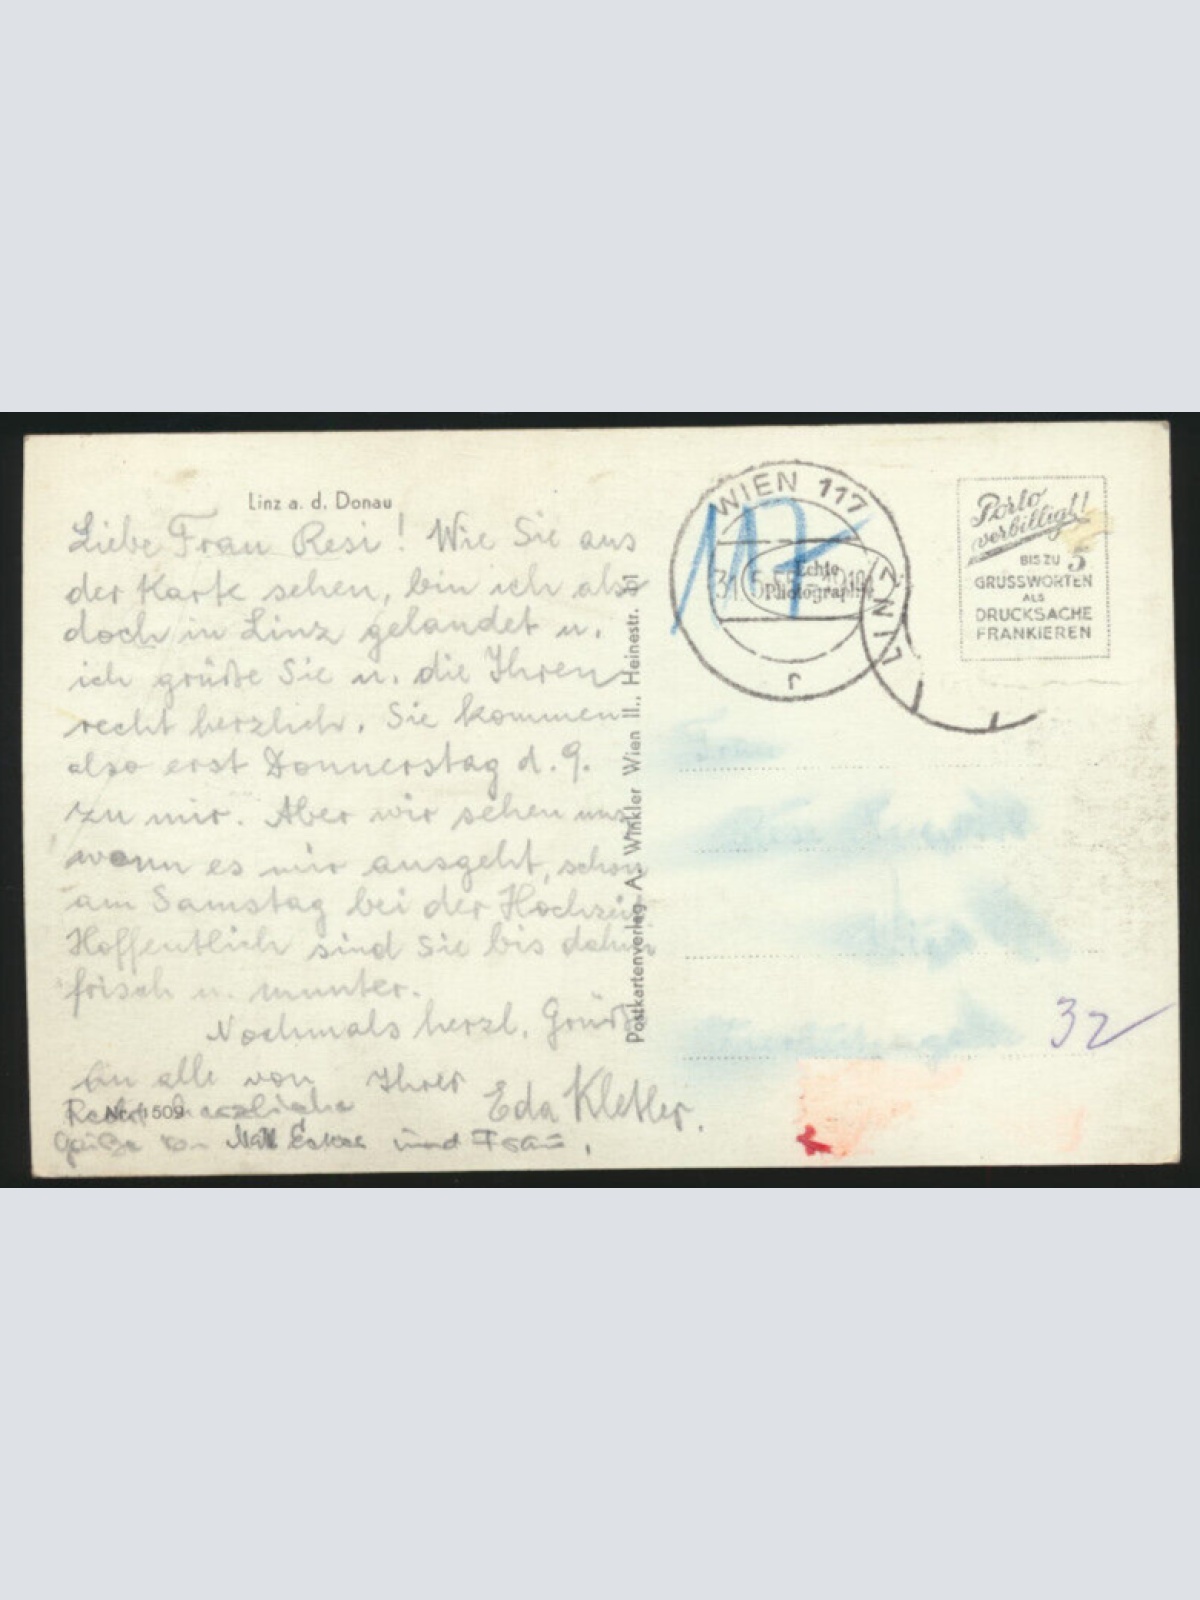 Linz a. d. Donau
Liebe Frau Resi! Wie Sie aus
der Karte sehen, bin ich also
doch in Linz gelandet u.
ich grüße Sie u. die Ihren
recht herzlich. Sie kommen
also erst Donnerstag d. 9.
zu mir. Aber wir sehen uns,
wenn es mir ausgeht, schon
am Samstag bei der Hochzeit
Hoffentlich sind Sie bis dahin
frisch u. munter.
Nochmals herzl. Grüße
an alle von Ihrer
Eda
Nr. 1509
herzliche
Grüße von und Frau.
Postkartenverlag A. Winkler Wien II., Heinestr.
WIEN 117
r
Echte
Photographie
117
LINZ
Porto
verbilligt!!
BIS ZU 5
GRUSSWORTEN
ALS
DRUCKSACHE
FRANKIEREN
Frau
32